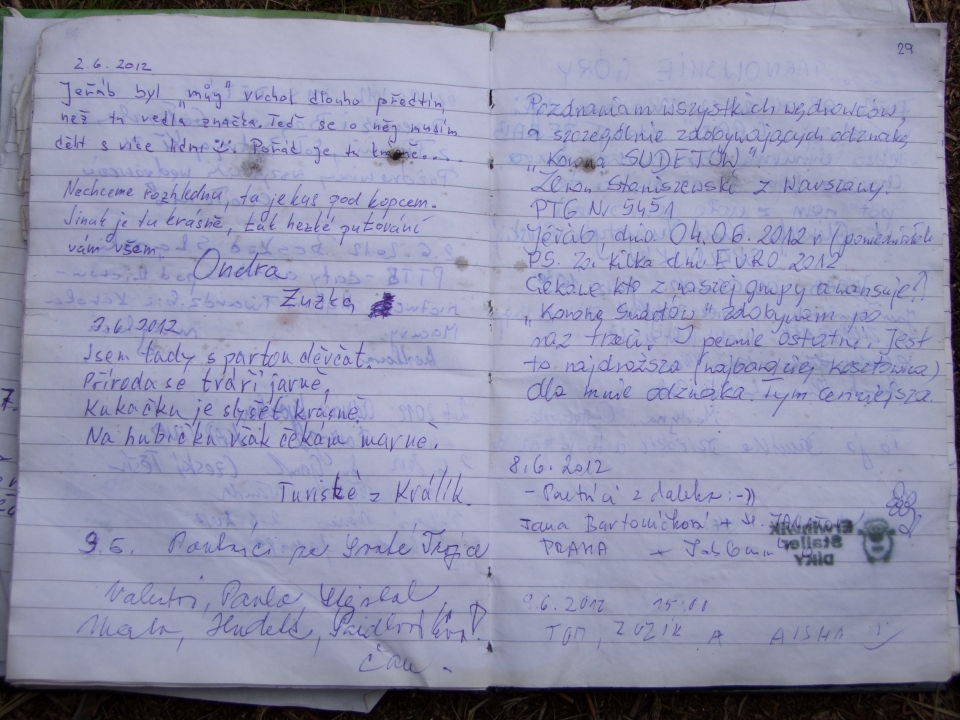 2.6.2012
Jeřáb byl "můj" vrchol dlouho předtím
než tu vedla značka. Teď se o něj musím
dělit s více lidmi. Pořád je tu krásně....
Nechceme Rozhlednu, ta je kus pod kopcem.
Jinak je tu krásně, tak hezké putování
vám všem
Ondra
Zuzka
2.6.2012
Jsem tady s partou děvčat.
Příroda se tváří jarně,
Kukačku je slyšet krásně.
Na hubičku však čekám marně.
Turisté z Králík
9.6.
Valentin, Pavla,
Čau
29
Pozdrawiam wszystkich wędrowców,
a szczególnie zdobywających odznakę
"Korona SUDETÓW"
Zenon Staniszewski z Warszawy
PTG Nr 5451
Jeřáb, dnia 04.06.2012 r (poniedziałek)
PS. Za kilka dni EURO 2012
Ciekawe kto z naszej grupy awansuje?
"Koronę Sudetów" zdobywam po
raz trzeci. I pewnie ostatni. Jest
to najdroższa (najbardziej kosztowna)
dla mnie odznaka. Tym cenniejsza
8.6.2012
z daleka :-))
Jana Bartoníčková +
PRAHA +
Štafler
DÍKY
9.6.2012 15:01
TOM, ZUZIK A AISHA